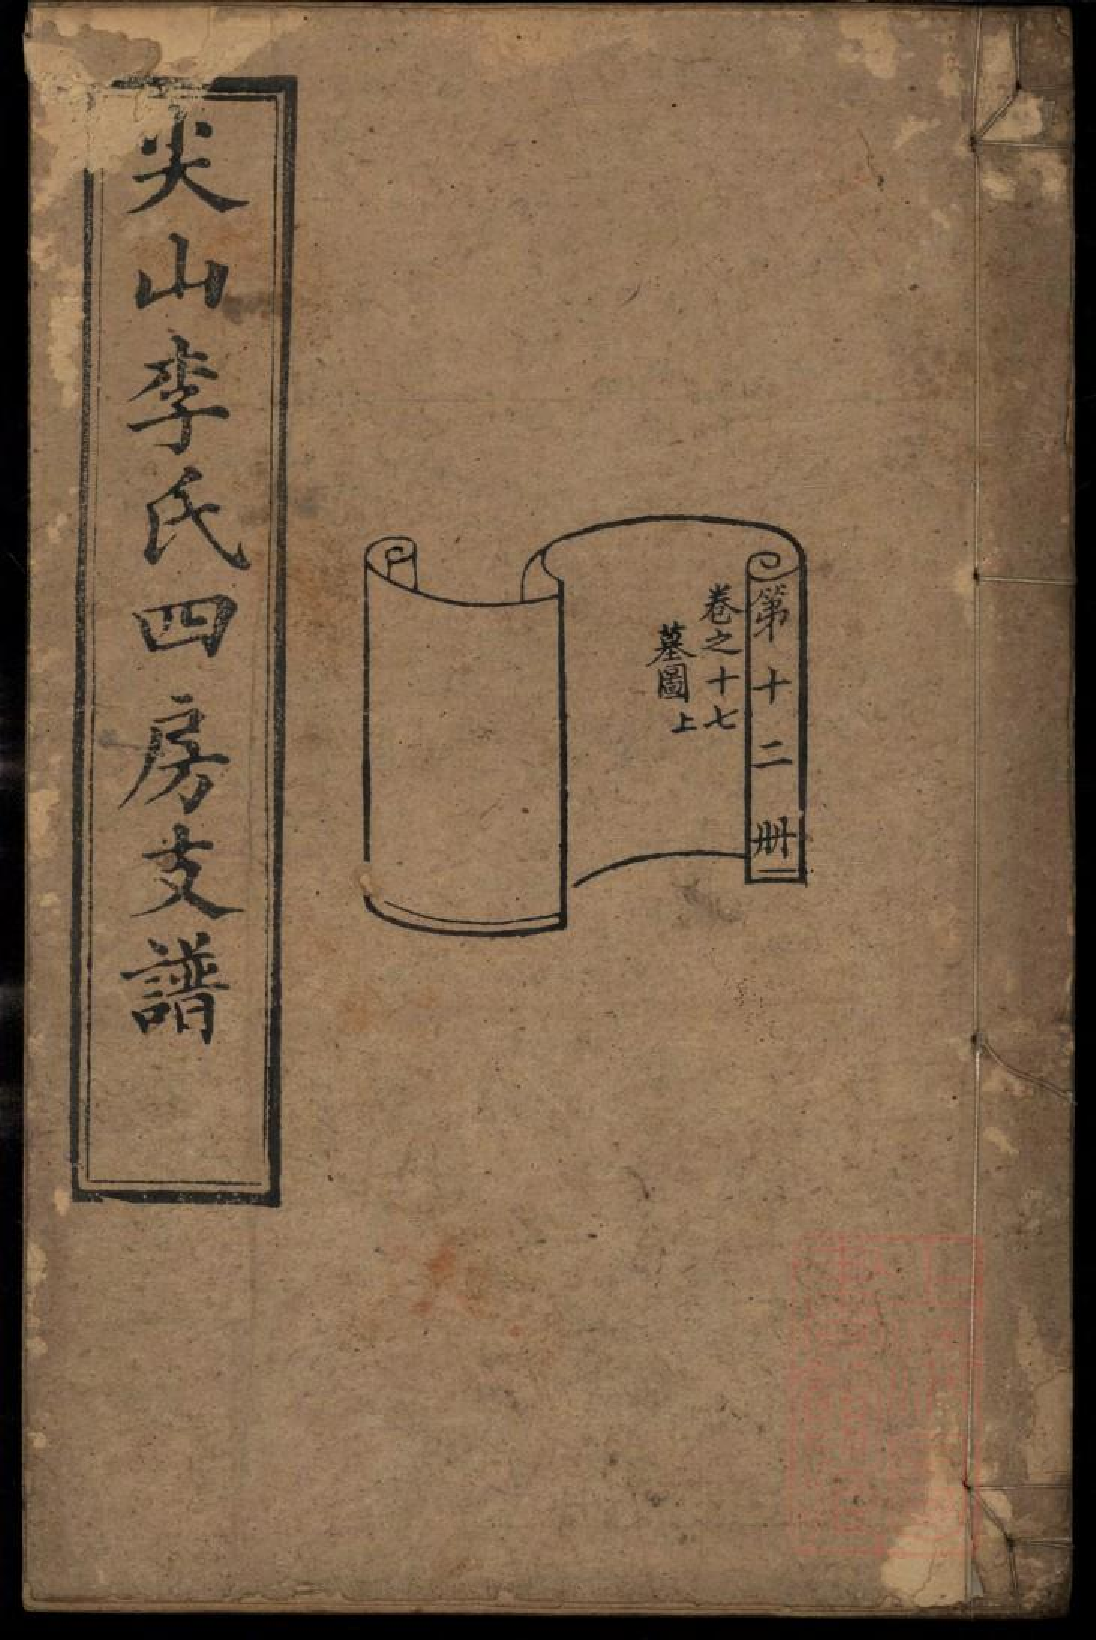 第十二册
卷之十七
墓圖上
尖山李氏四房支譜